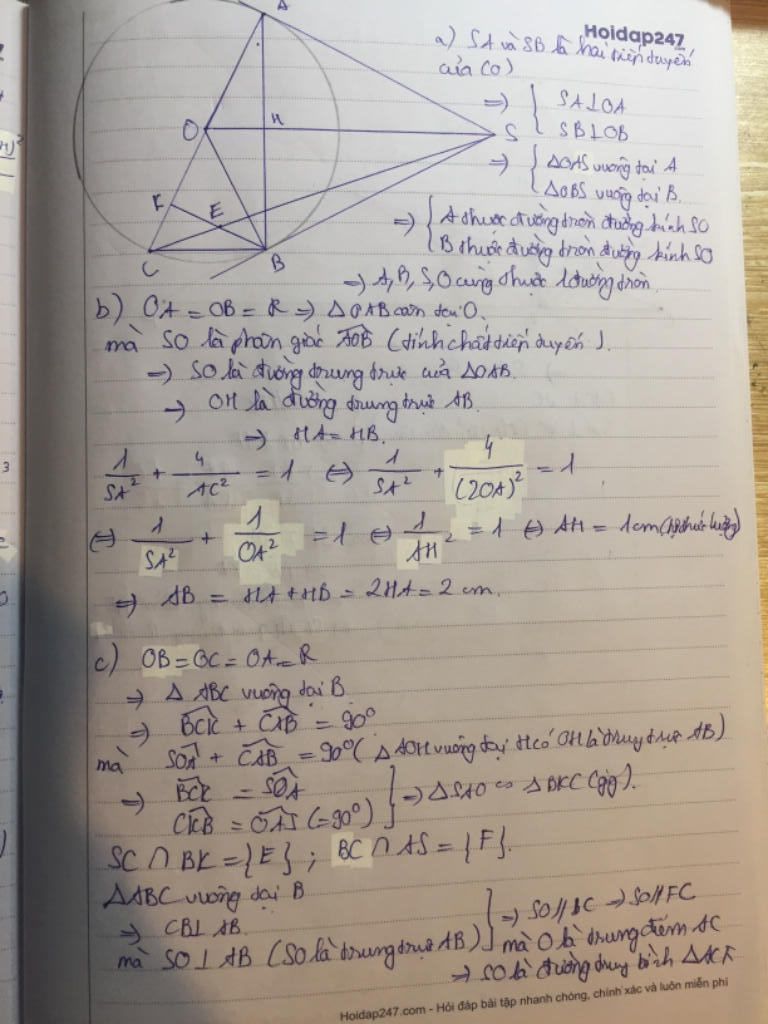 Hoidap247
a) SA và SB là hai tiếp tuyến
của (O)
=> { SA⊥OA
SB⊥OB
=> { ΔOAS vuông tại A
ΔOBS vuông tại B.
=> { A thuộc đường tròn đường kính SO
B thuộc đường tròn đường kính SO
=> A, B, S, O cùng thuộc 1 đường tròn.
A
O
H
S
K
E
C
B
b) OA = OB = R => ΔOAB cân tại O.
mà SO là phân giác AOB (tính chất tiếp tuyến).
=> SO là đường trung trực của ΔOAB.
=> OH là đường trung trực AB.
=> HA = HB.
1/SA² + 4/AC² = 1 <=> 1/SA² + 4/(2OA)² = 1
<=> 1/SA² + 1/OA² = 1 <=> 1/AH² = 1 <=> AH = 1cm (hệ thức lượng)
=> AB = HA + HB = 2HA = 2 cm.
c) OB = OC = OA = R
=> Δ ABC vuông tại B
=> BCK + CAB = 90°
mà SOA + CAB = 90° (Δ AOH vuông tại H có OH là trung trực AB)
=> BCK = SOA
CKB = OAS (= 90°) } => ΔSAO ∽ ΔBKC (gg).
SC ∩ BK = {E} ; BC ∩ AS = {F}.
ΔABC vuông tại B
=> CB⊥ AB.
mà SO ⊥ AB (SO là trung trực AB) } => SO // BC => SO // FC
mà O là trung điểm AC
=> SO là đường trung bình ΔACF
Hoidap247.com - Hỏi đáp bài tập nhanh chóng, chính xác và luôn miễn phí